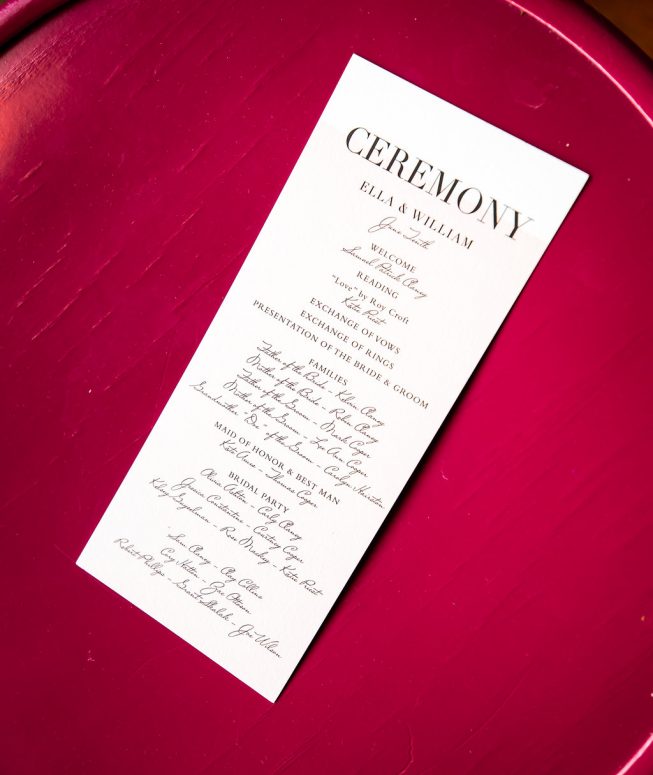 CEREMONY
ELLA & WILLIAM
June Tenth
WELCOME
Samuel Patrick Clancy
READING
"Love" by Roy Croft
Katie Priest
EXCHANGE OF VOWS
EXCHANGE OF RINGS
PRESENTATION OF THE BRIDE & GROOM
FAMILIES
Father of the Bride - Kelvin Clancy
Mother of the Bride - Robin Clancy
Father of the Groom - Mark Cooper
Mother of the Groom - Lee Ann Cooper
Grandmother "Dee" of the Groom - Carolyn Hairston
MAID OF HONOR & BEST MAN
Kate Anne - Thomas Cooper
BRIDAL PARTY
Olivia Ashton - Carly Clancy
Jessica Constantine - Courtney Cooper
Kelsey - Rose - Katie Priest
Sam Clancy - Clay Collins
Cory - Zac
Robert Phillips - Grant - Joe Wilson